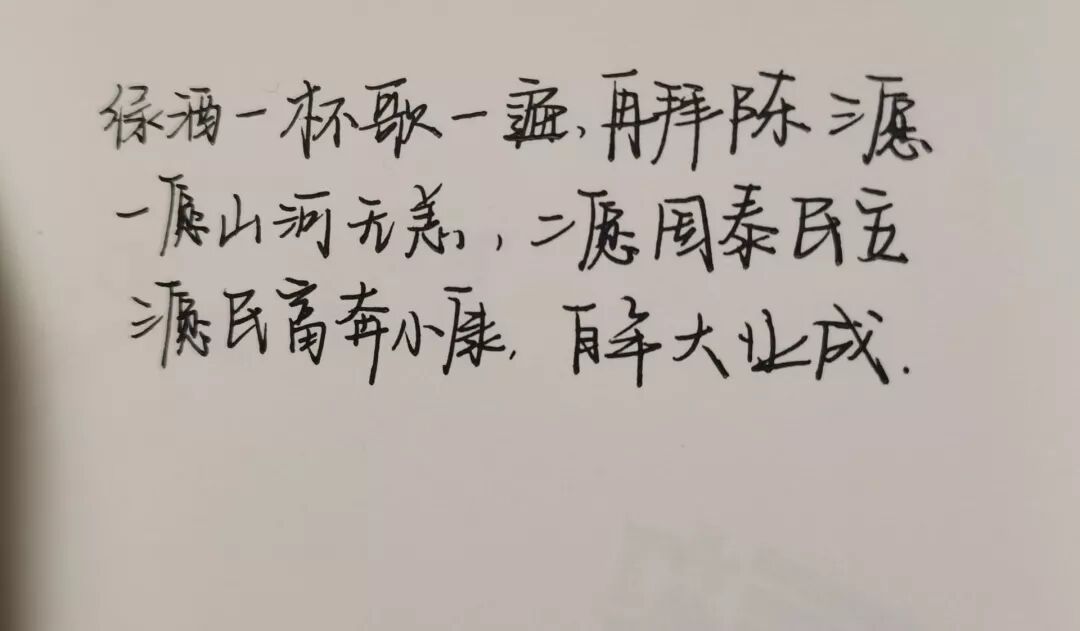 绿酒一杯歌一遍、再拜陈三愿
一愿山河无恙，二愿国泰民立
三愿民富奔小康，百年大业成.